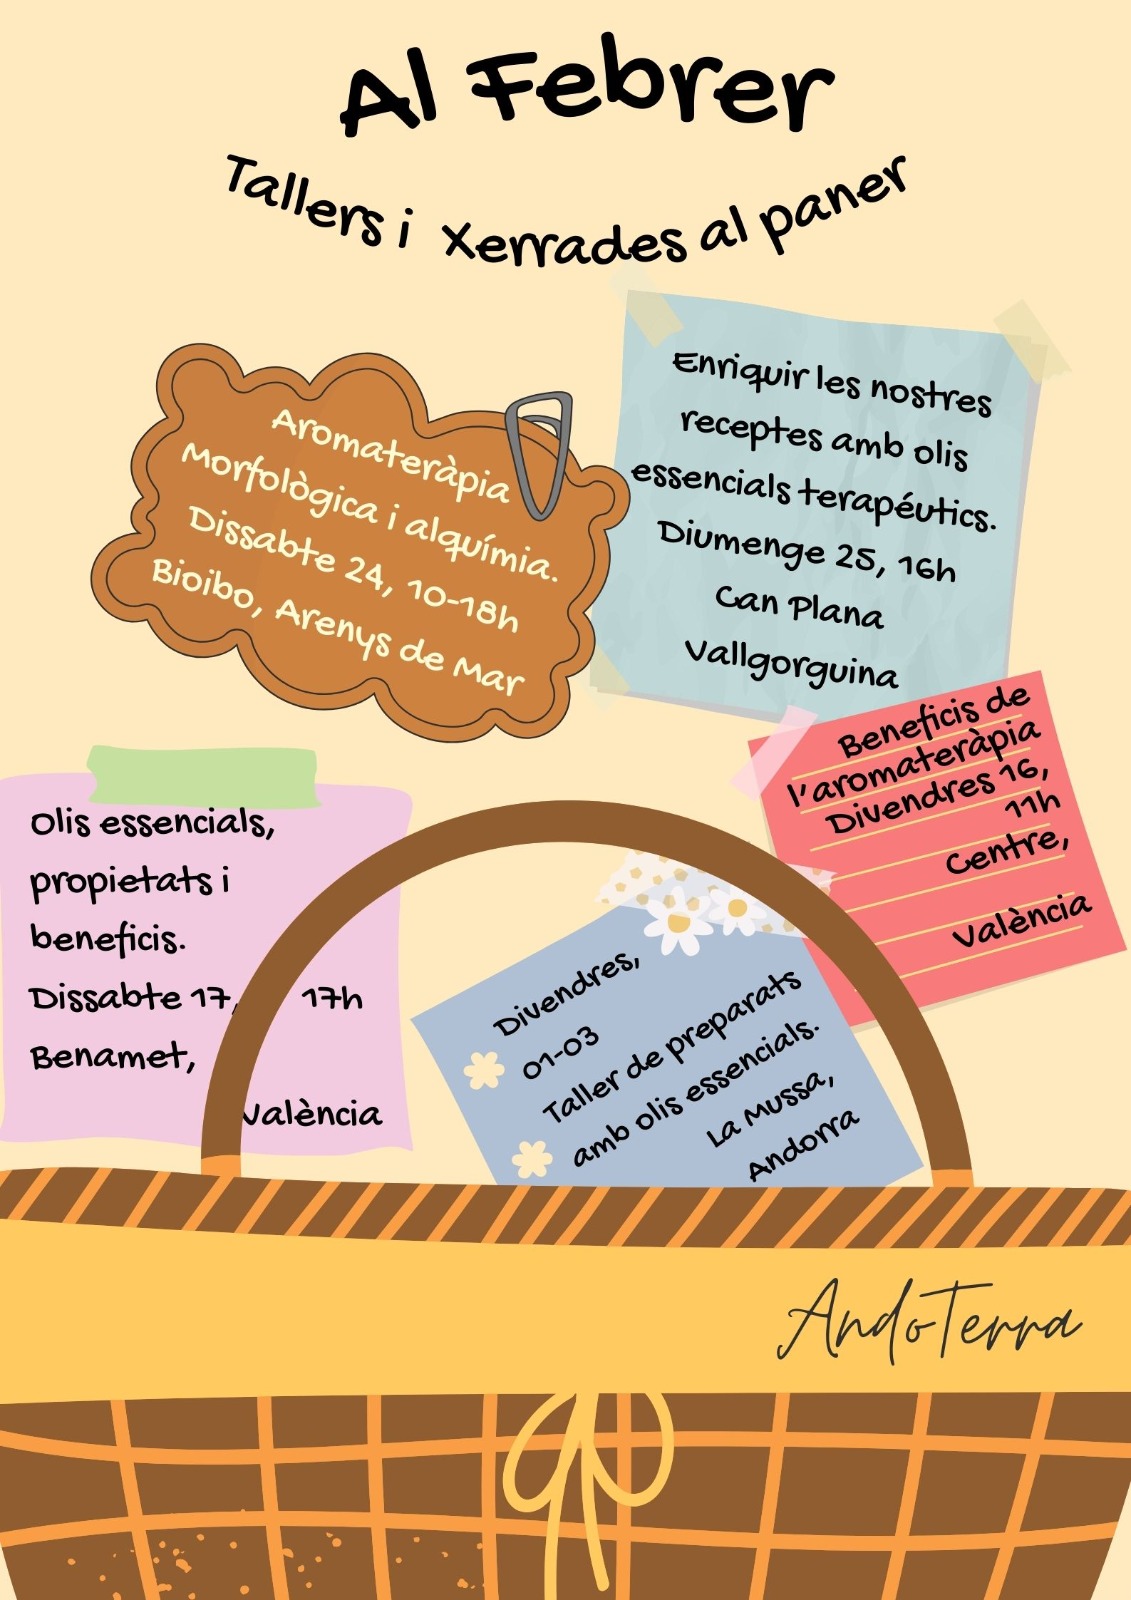 Al Febrer
Tallers i Xerrades al paner
Aromateràpia
Morfològica i alquímia.
Dissabte 24, 10-18h
Bioibo, Arenys de Mar
Enriquir les nostres
receptes amb olis
essencials terapéutics.
Diumenge 25, 16h
Can Plana
Vallgorguina
Beneficis de
l'aromateràpia
Divendres 16,
11h
Centre,
València
Olis essencials,
propietats i
beneficis.
Dissabte 17, 17h
Benamet,
València
Divendres,
01-03
Taller de preparats
amb olis essencials.
La Mussa,
Andorra
AndoTerra